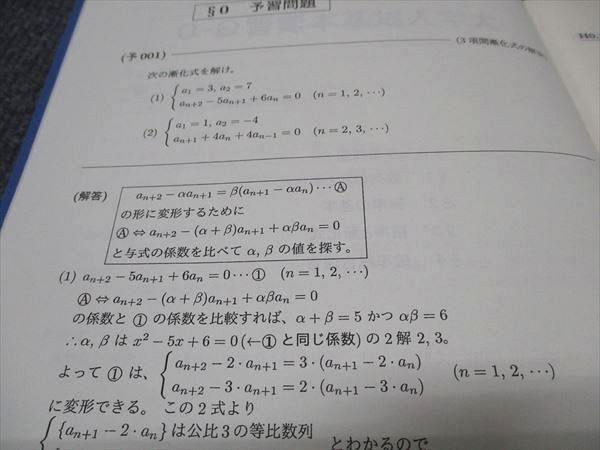 §0 予習問題
(予 001)
(3 項間漸化式の解法)
次の漸化式を解け。
(1) { a₁ = 3, a₂ = 7
aₙ₊₂ − 5aₙ₊₁ + 6aₙ = 0 (n = 1, 2, ⋯)
(2) { a₁ = 1, a₂ = −4
aₙ₊₁ + 4aₙ + 4aₙ₋₁ = 0 (n = 2, 3, ⋯)
(解答)
aₙ₊₂ − αaₙ₊₁ = β(aₙ₊₁ − αaₙ) ⋯ Ⓐ
の形に変形するために
Ⓐ ⇔ aₙ₊₂ − (α + β)aₙ₊₁ + αβaₙ = 0
と与式の係数を比べて α, β の値を探す。
(1) aₙ₊₂ − 5aₙ₊₁ + 6aₙ = 0 ⋯ ① (n = 1, 2, ⋯)
Ⓐ ⇔ aₙ₊₂ − (α + β)aₙ₊₁ + αβaₙ = 0
の係数と ① の係数を比較すれば、α + β = 5 かつ αβ = 6
∴ α, β は x² − 5x + 6 = 0 (← ① と同じ係数) の 2 解 2, 3。
よって ① は、{ aₙ₊₂ − 2・aₙ₊₁ = 3・(aₙ₊₁ − 2・aₙ)
aₙ₊₂ − 3・aₙ₊₁ = 2・(aₙ₊₁ − 3・aₙ) (n = 1, 2, ⋯)
に変形できる。 この 2 式より
{ {aₙ₊₁ − 2・aₙ} は公比 3 の等比数列
とわかるので